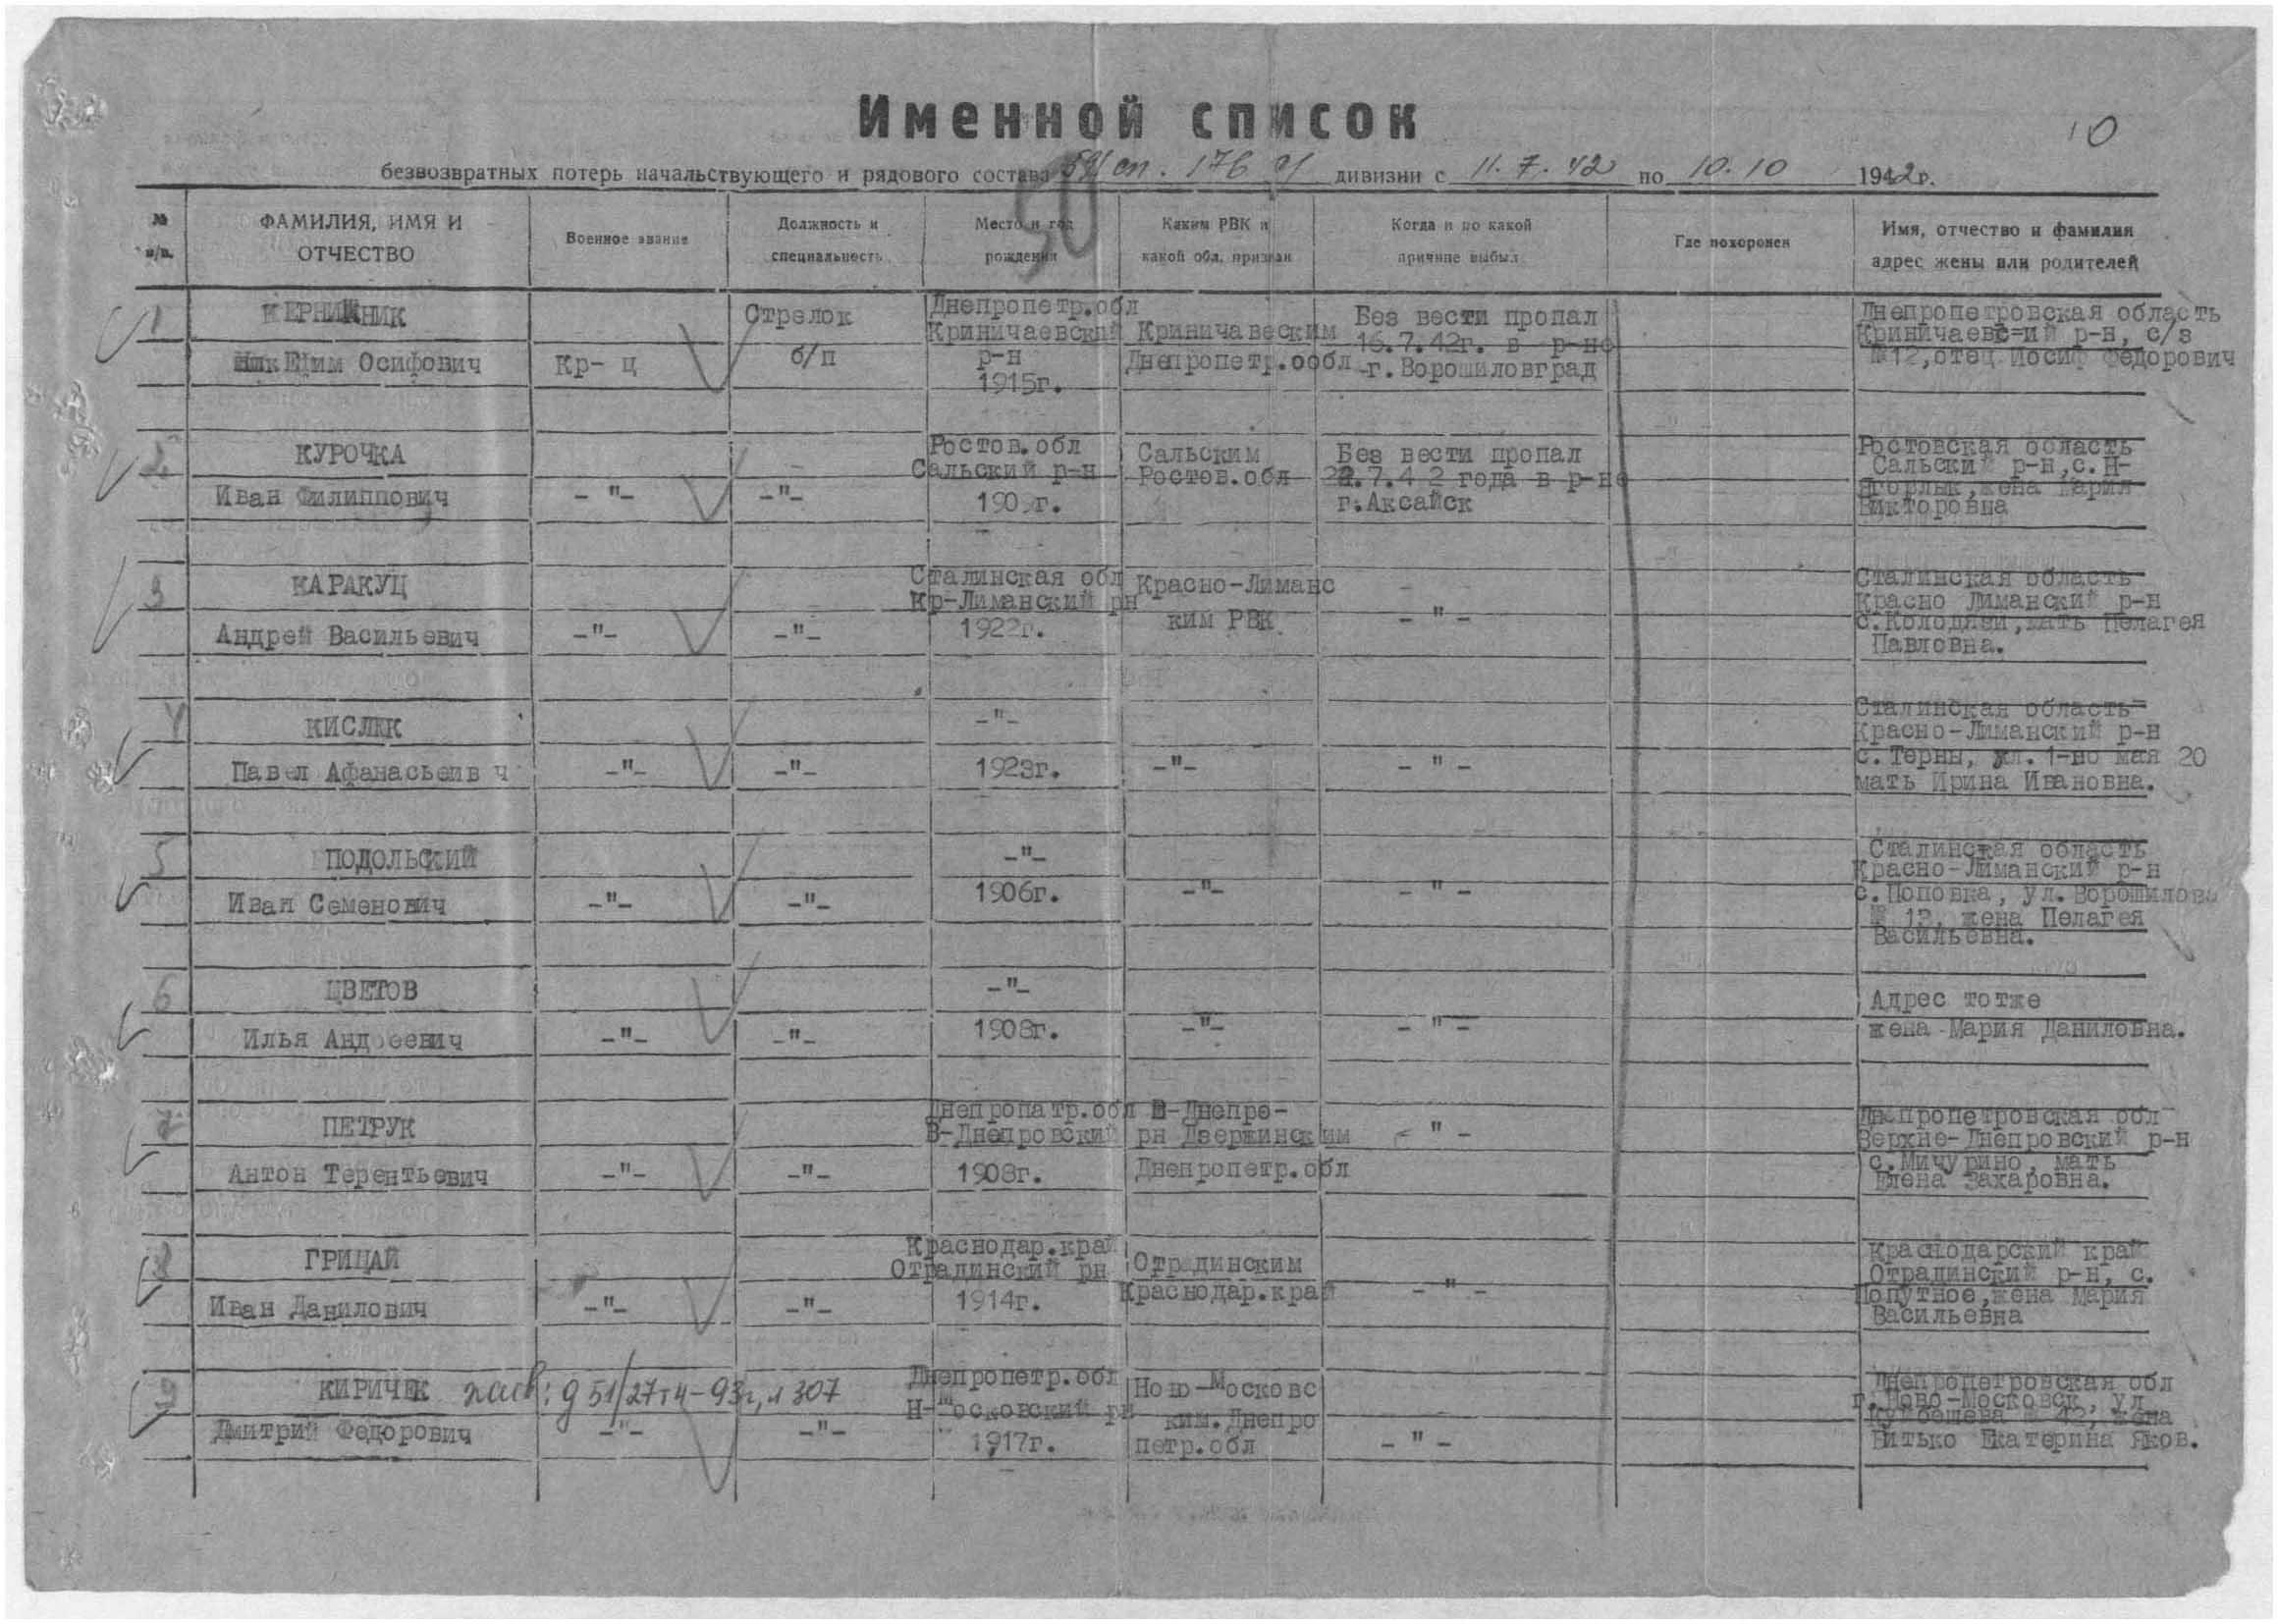 Именной список
10
безвозвратных потерь начальствующего и рядового состава 591 сп. 176 сд дивизии с 11.7.42 по 10.10 1942 г.
50
№ п/п.
ФАМИЛИЯ, ИМЯ И ОТЧЕСТВО
Военное звание
Должность и специальность
Место и год рождения
Каким РВК и какой обл. призван
Когда и по какой причине выбыл
Где похоронен
Имя, отчество и фамилия адрес жены или родителей
1
Ефим Осифович
Кр-ц
Стрелок
б/п
Днепропетр.обл
Криничаевский
р-н
1915г.
Криничавеским
Днепропетр.ообл
Без вести пропал
16.7.42г. в р-не
г.Ворошиловград
Днепропетровская область
Криничаевс=ий р-н, с/з
№12,отец Иосиф Федорович
2
КУРОЧКА
Иван Филиппович
-"-
-"-
Ростов.обл
Сальский р-н
Сальским
Ростов.обл
Без вести пропал
22.7.42 года в р-не
г.Аксайск
Ростовская область
Сальский р-н,с.Н-
Ягорлык,жена Мария
Викторовна
3
КАРАКУЦ
Андрей Васильевич
-"-
-"-
Сталинская обл
Кр-Лиманский рн
1922г.
Красно-Лиманс
ким РВК
-"-
Сталинская область
Красно Лиманский р-н
с.Колодязи,мать Пелагея
Павловна.
4
КИСЛЕК
Павел Афанасьеив ч
-"-
-"-
-"-
1923г.
-"-
-"-
Сталинская область
Красно-Лиманский р-н
с.Терны, ул. 1-но мая 20
мать Ирина Ивановна.
5
ПОДОЛЬСКИЙ
Иван Семенович
-"-
-"-
-"-
1906г.
-"-
-"-
Сталинская область
Красно-Лиманский р-н
с.Поповка, ул.Ворошилова
№ 13, жена Пелагея
Васильевна.
6
ЦВЕТОВ
Илья Андреевич
-"-
-"-
-"-
1908г.
-"-
-"-
Адрес тотже
жена Мария Даниловна.
7
ПЕТРУК
Антон Терентьевич
-"-
-"-
Днепропатр.обл
В-Днепровский
1908г.
В-Днепро-
рн Дзержинским
Днепропетр.обл
-"-
Днепропетровская обл
Верхне-Днепровский р-н
с.Мичурино, мать
Елена Захаровна.
8
ГРИЦАЙ
Иван Данилович
-"-
-"-
Краснодар.край
Отрадинский рн
1914г.
Отрадинским
Краснодар.край
-"-
Краснодарский край
Отрадинский р-н, с.
Попутное,жена Мария
Васильевна
9
КИРИЧЕК
д 51/27т4-93г, л 307
Дмитрий Федорович
-"-
-"-
Днепропетр.обл
Н-Московский рн
1917г.
Ново-Московс
ким.Днепро
петр.обл
-"-
Днепропетровская обл
г.Ново-Московск, ул
Куйбешева № 42, жена
Битько Екатерина Яков.